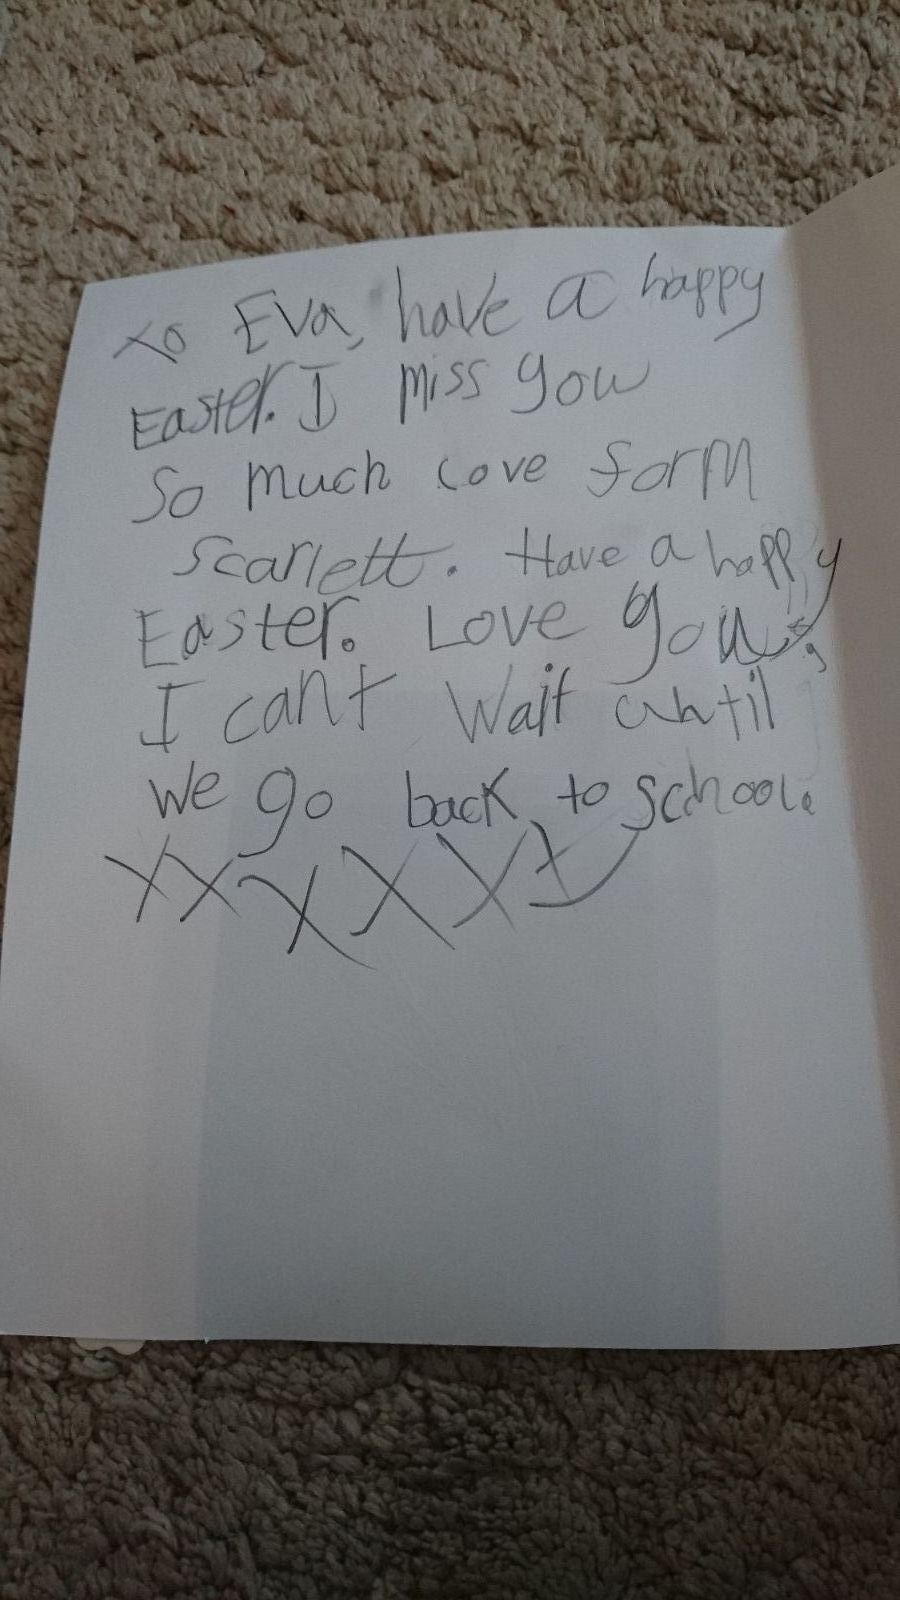 to Eva, have a happy
Easter. I miss you
So much love form
Scarlett. Have a happy
Easter. Love you,
I cant wait until
we go back to school.
XXXXXX